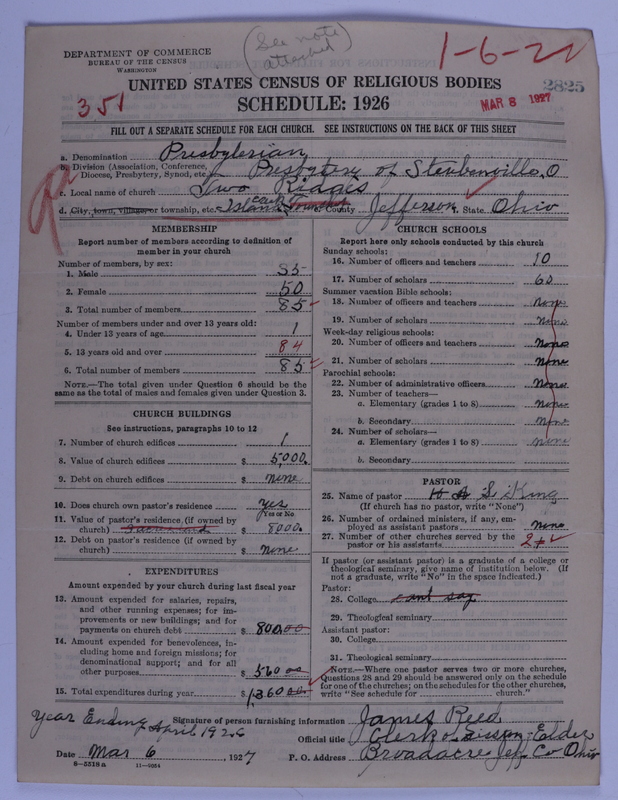 DEPARTMENT OF COMMERCE
BUREAU OF THE CENSUS
WASHINGTON
(See note attached)
1-6-22
UNITED STATES CENSUS OF RELIGIOUS BODIES
2825
351
SCHEDULE: 1926
MAR 8 1927
FILL OUT A SEPARATE SCHEDULE FOR EACH CHURCH. SEE INSTRUCTIONS ON THE BACK OF THIS SHEET
a. Denomination Presbyterian
b. Division (Association, Conference, Diocese, Presbytery, Synod, etc.) Presbytery of Steubenville, O
c. Local name of church Two Ridges
d. City, town, village, or township, etc. Island Creek e. County Jefferson f. State Ohio
MEMBERSHIP
Report number of members according to definition of
member in your church
Number of members, by sex:
1. Male 35
2. Female 50
3. Total number of members 85
Number of members under and over 13 years old:
4. Under 13 years of age 1
5. 13 years old and over 84
6. Total number of members 85
NOTE.—The total given under Question 6 should be the
same as the total of males and females given under Question 3.
CHURCH BUILDINGS
See instructions, paragraphs 10 to 12
7. Number of church edifices 1
8. Value of church edifices $ 5,000.
9. Debt on church edifices $ none
10. Does church own pastor's residence yes
(Yes or No)
11. Value of pastor's residence (if owned by
church) $ 8000.
12. Debt on pastor's residence (if owned by
church) $ None
EXPENDITURES
Amount expended by your church during last fiscal year
13. Amount expended for salaries, repairs,
and other running expenses; for im-
provements or new buildings; and for
payments on church debt $ 800.00
14. Amount expended for benevolences, in-
cluding home and foreign missions; for
denominational support; and for all
other purposes $ 560 00
15. Total expenditures during year $ 1,360 00
CHURCH SCHOOLS
Report here only schools conducted by this church
Sunday schools:
16. Number of officers and teachers 10
17. Number of scholars 60
Summer vacation Bible schools:
18. Number of officers and teachers None
19. Number of scholars None
Week-day religious schools:
20. Number of officers and teachers None
21. Number of scholars None
Parochial schools:
22. Number of administrative officers None
23. Number of teachers—
a. Elementary (grades 1 to 8) None
b. Secondary None
24. Number of scholars—
a. Elementary (grades 1 to 8) None
b. Secondary
PASTOR
25. Name of pastor S King
(If church has no pastor, write "None")
26. Number of ordained ministers, if any, em-
ployed as assistant pastors None
27. Number of other churches served by the
pastor or his assistants 2
If pastor (or assistant pastor) is a graduate of a college or
theological seminary, give name of institution below. (If
not a graduate, write "No" in the space indicated.)
Pastor:
28. College cant say
29. Theological seminary
Assistant pastor:
30. College
31. Theological seminary
NOTE.—Where one pastor serves two or more churches,
Questions 28 and 29 should be answered only on the schedule
for one of the churches; on the schedules for the other churches,
write "See schedule for church."
Year Ending April 1926
Signature of person furnishing information James Reed
Official title Clerk of Session-Elder
Date Mar 6, 1927
P. O. Address Broadacre Jeff Co Ohio
8-5518a 11-9054